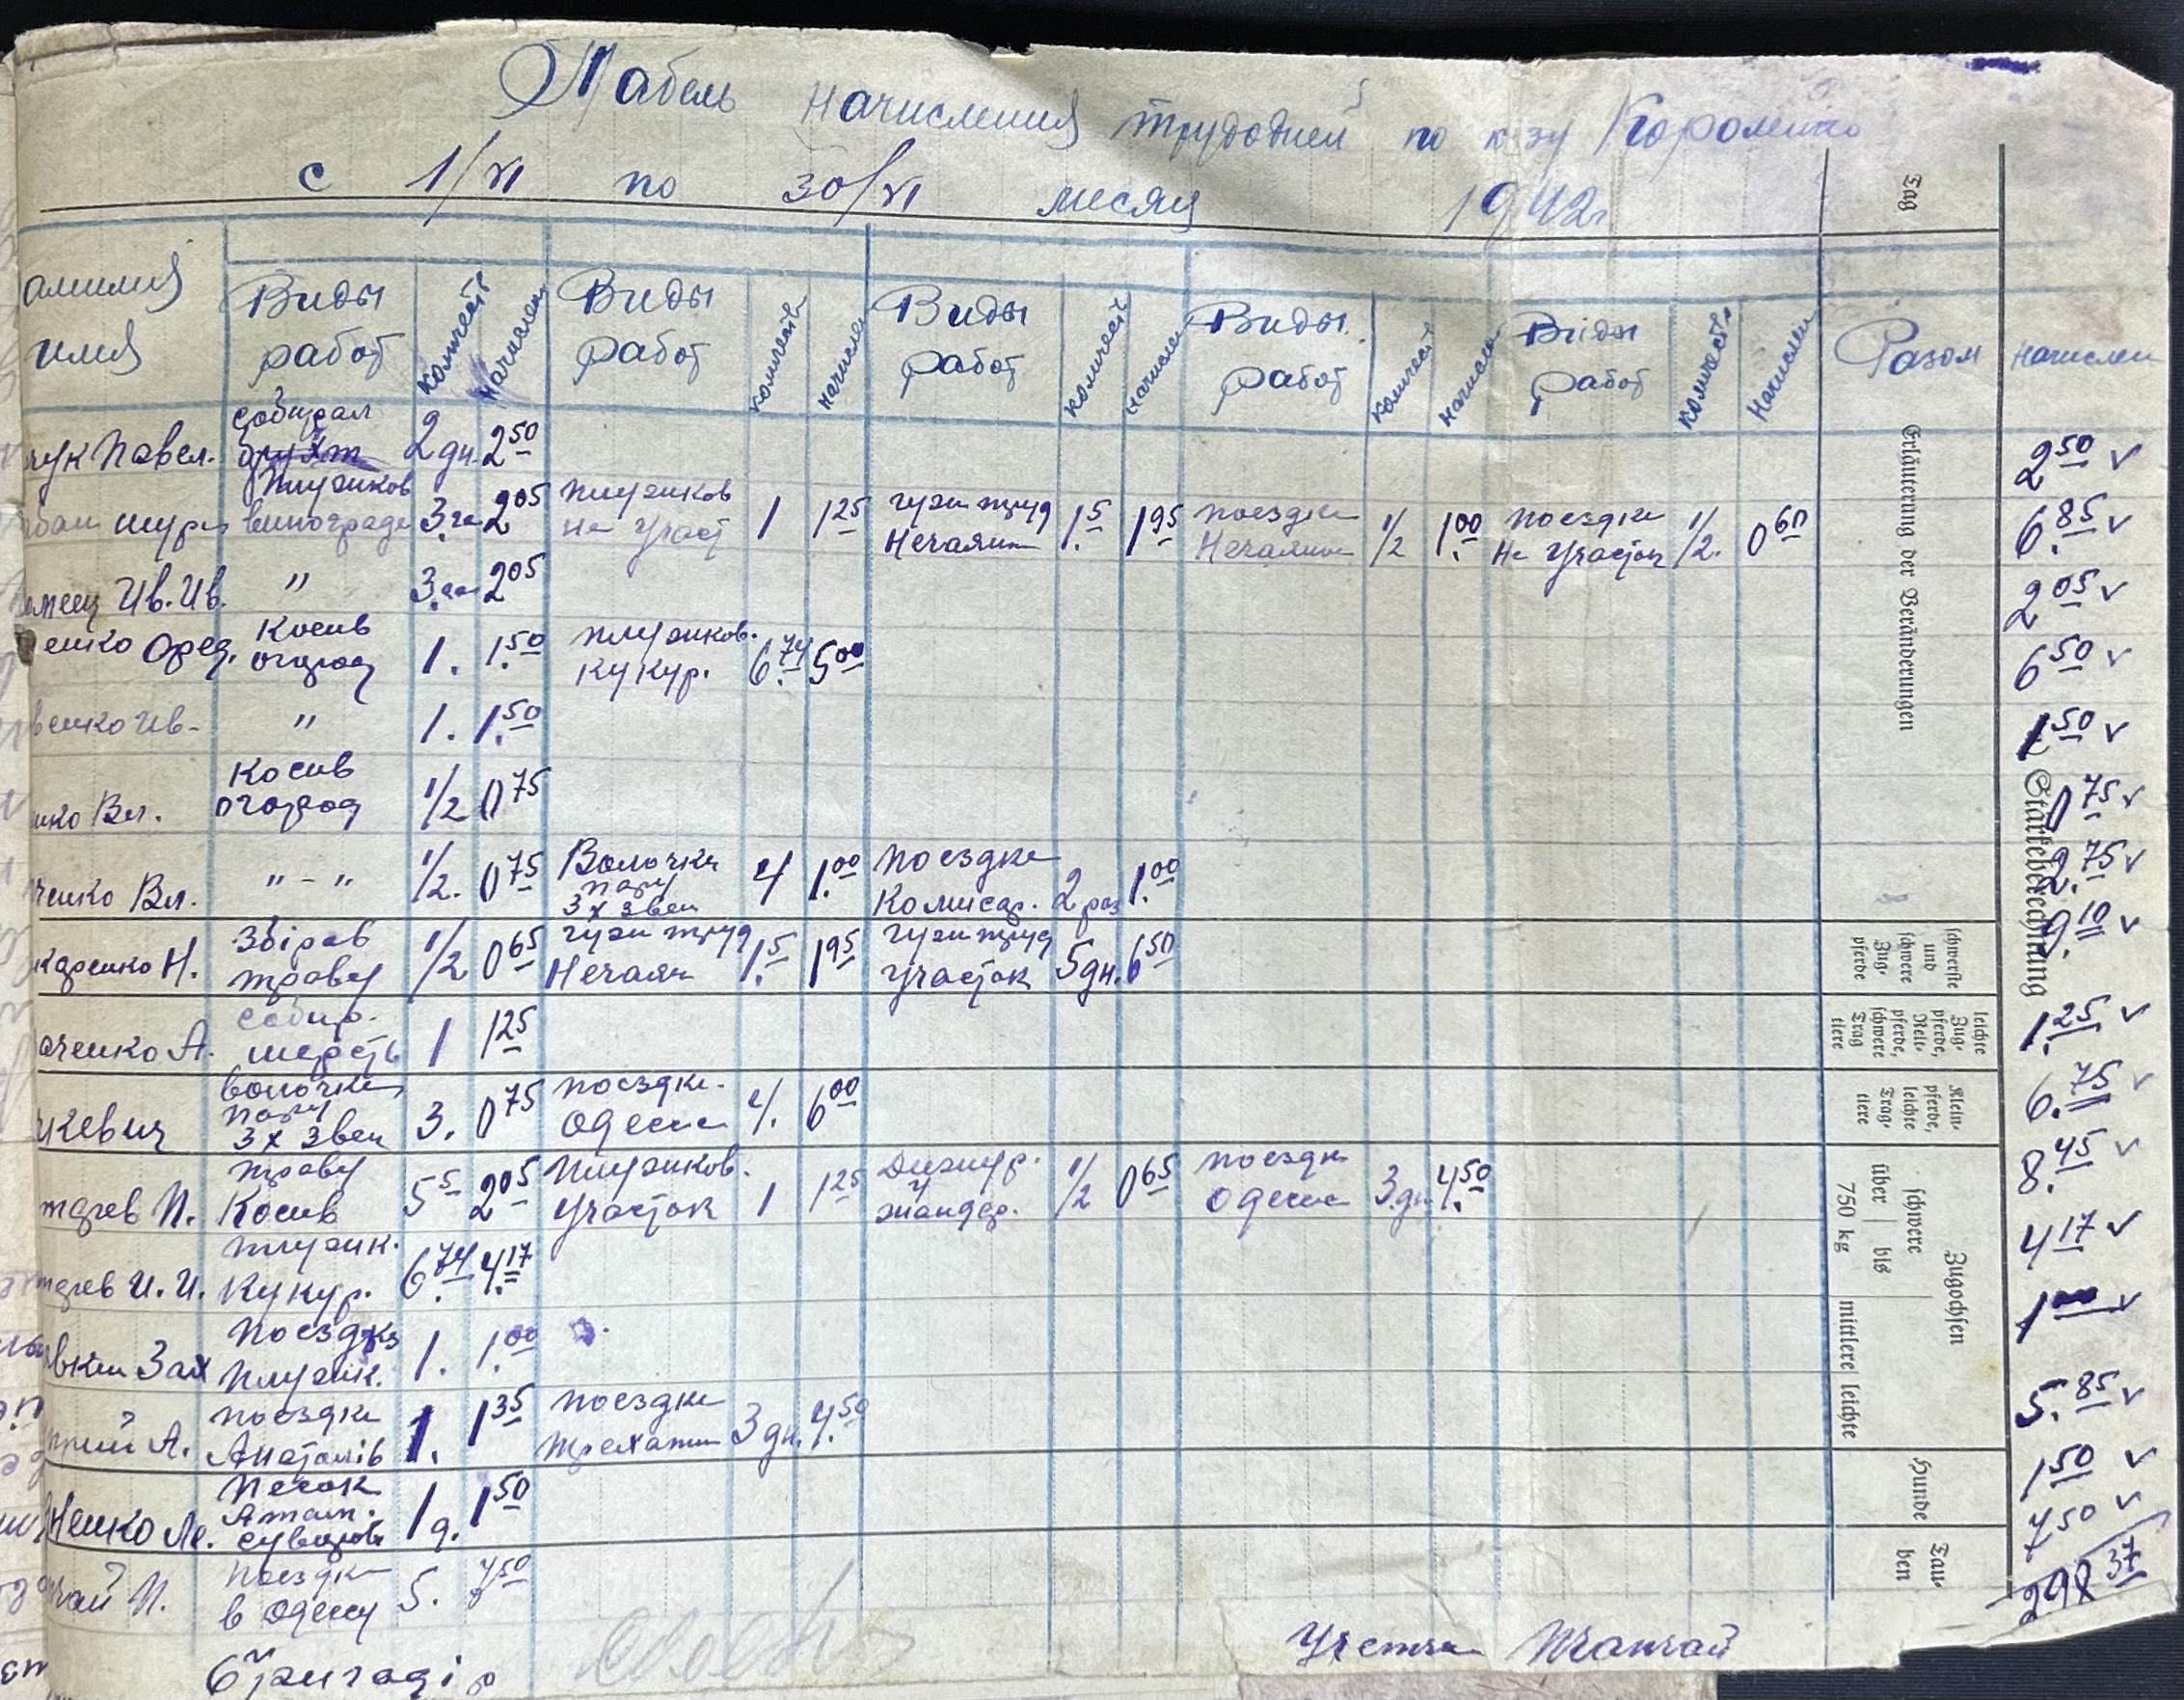 Табель начисления трудодней по к-зу Короленко
с 1/VI по 30/VI месяц 1942г
Tag
амилия имя Виды работ количеств начислен Виды работ количеств начислен Виды работ количеств начислен Виды работ количест начислен Види работ количеств. начислен Разом начислен
чук Павел. собирал 2 дн. 2 50 2 50 v
шура плужиков винограда 3 2 05 плужиков на участ 1 1 25 гужтруд Нечаян 1.5 1 95 поездка Нечаян 1/2 1.00 поездка на участок 1/2. 0 60 6.85 v
Ив. Ив. " 3. 2 05 2 05 v
енко Фед. Косив огород 1. 1.50 плужиков. кукур. 6.74 5 00 6 50 v
венко Ив- " 1. 1.50 1 50 v
нко Вл. Косив огород 1/2 0 75 0 75 v
ченко Вл. " - " 1/2. 0 75 Волочка пару 3х звен 4 1.00 поездка Комисар. 2 раз 1.00 2.75 v
каренко Н. Збірав траву 1/2 0 65 гужтруд Нечаян 1.5 1 95 гужтруд участок 5 дн. 6 50 9.10 v
аченко А. собир. шерсть 1 1 25 1.25 v
чкевич волочка пару 3х звен 3. 0 75 поездка. Одесса 4. 6 00 6.75 v
П. траву Косив 5 5 2 05 плужиков. участок 1 1 25 Дижур. у жандар. 1/2 0 65 поездк Одесса 3 дн. 4.50 8.45 v
И. И. плужик. Кукур. 6.74 4.17 4 17 v
Зах поездка плужик. 1. 1.00 1 00 v
А. поездка Анатолів 1. 1 35 поездка Трихатки 3 дн. 4.50 5.85 v
Ненко Ле. Песок 1 д. 1 50 1 50 v
чай П. поездк в Одессу 5. 7 50 7 50 v
298 37
Erläuterung der Veränderungen
Stärkeberechnung
schwerste und schwere Zug- pferde
leichte Zug- pferde, Reit- pferde, schwere Trag tiere
Klein- pferde, leichte Trag- tiere
Zugochsen
schwere
über bis
750 kg
mittlere leichte
Hunde
Tau- ben
Учетчик
Бригадір